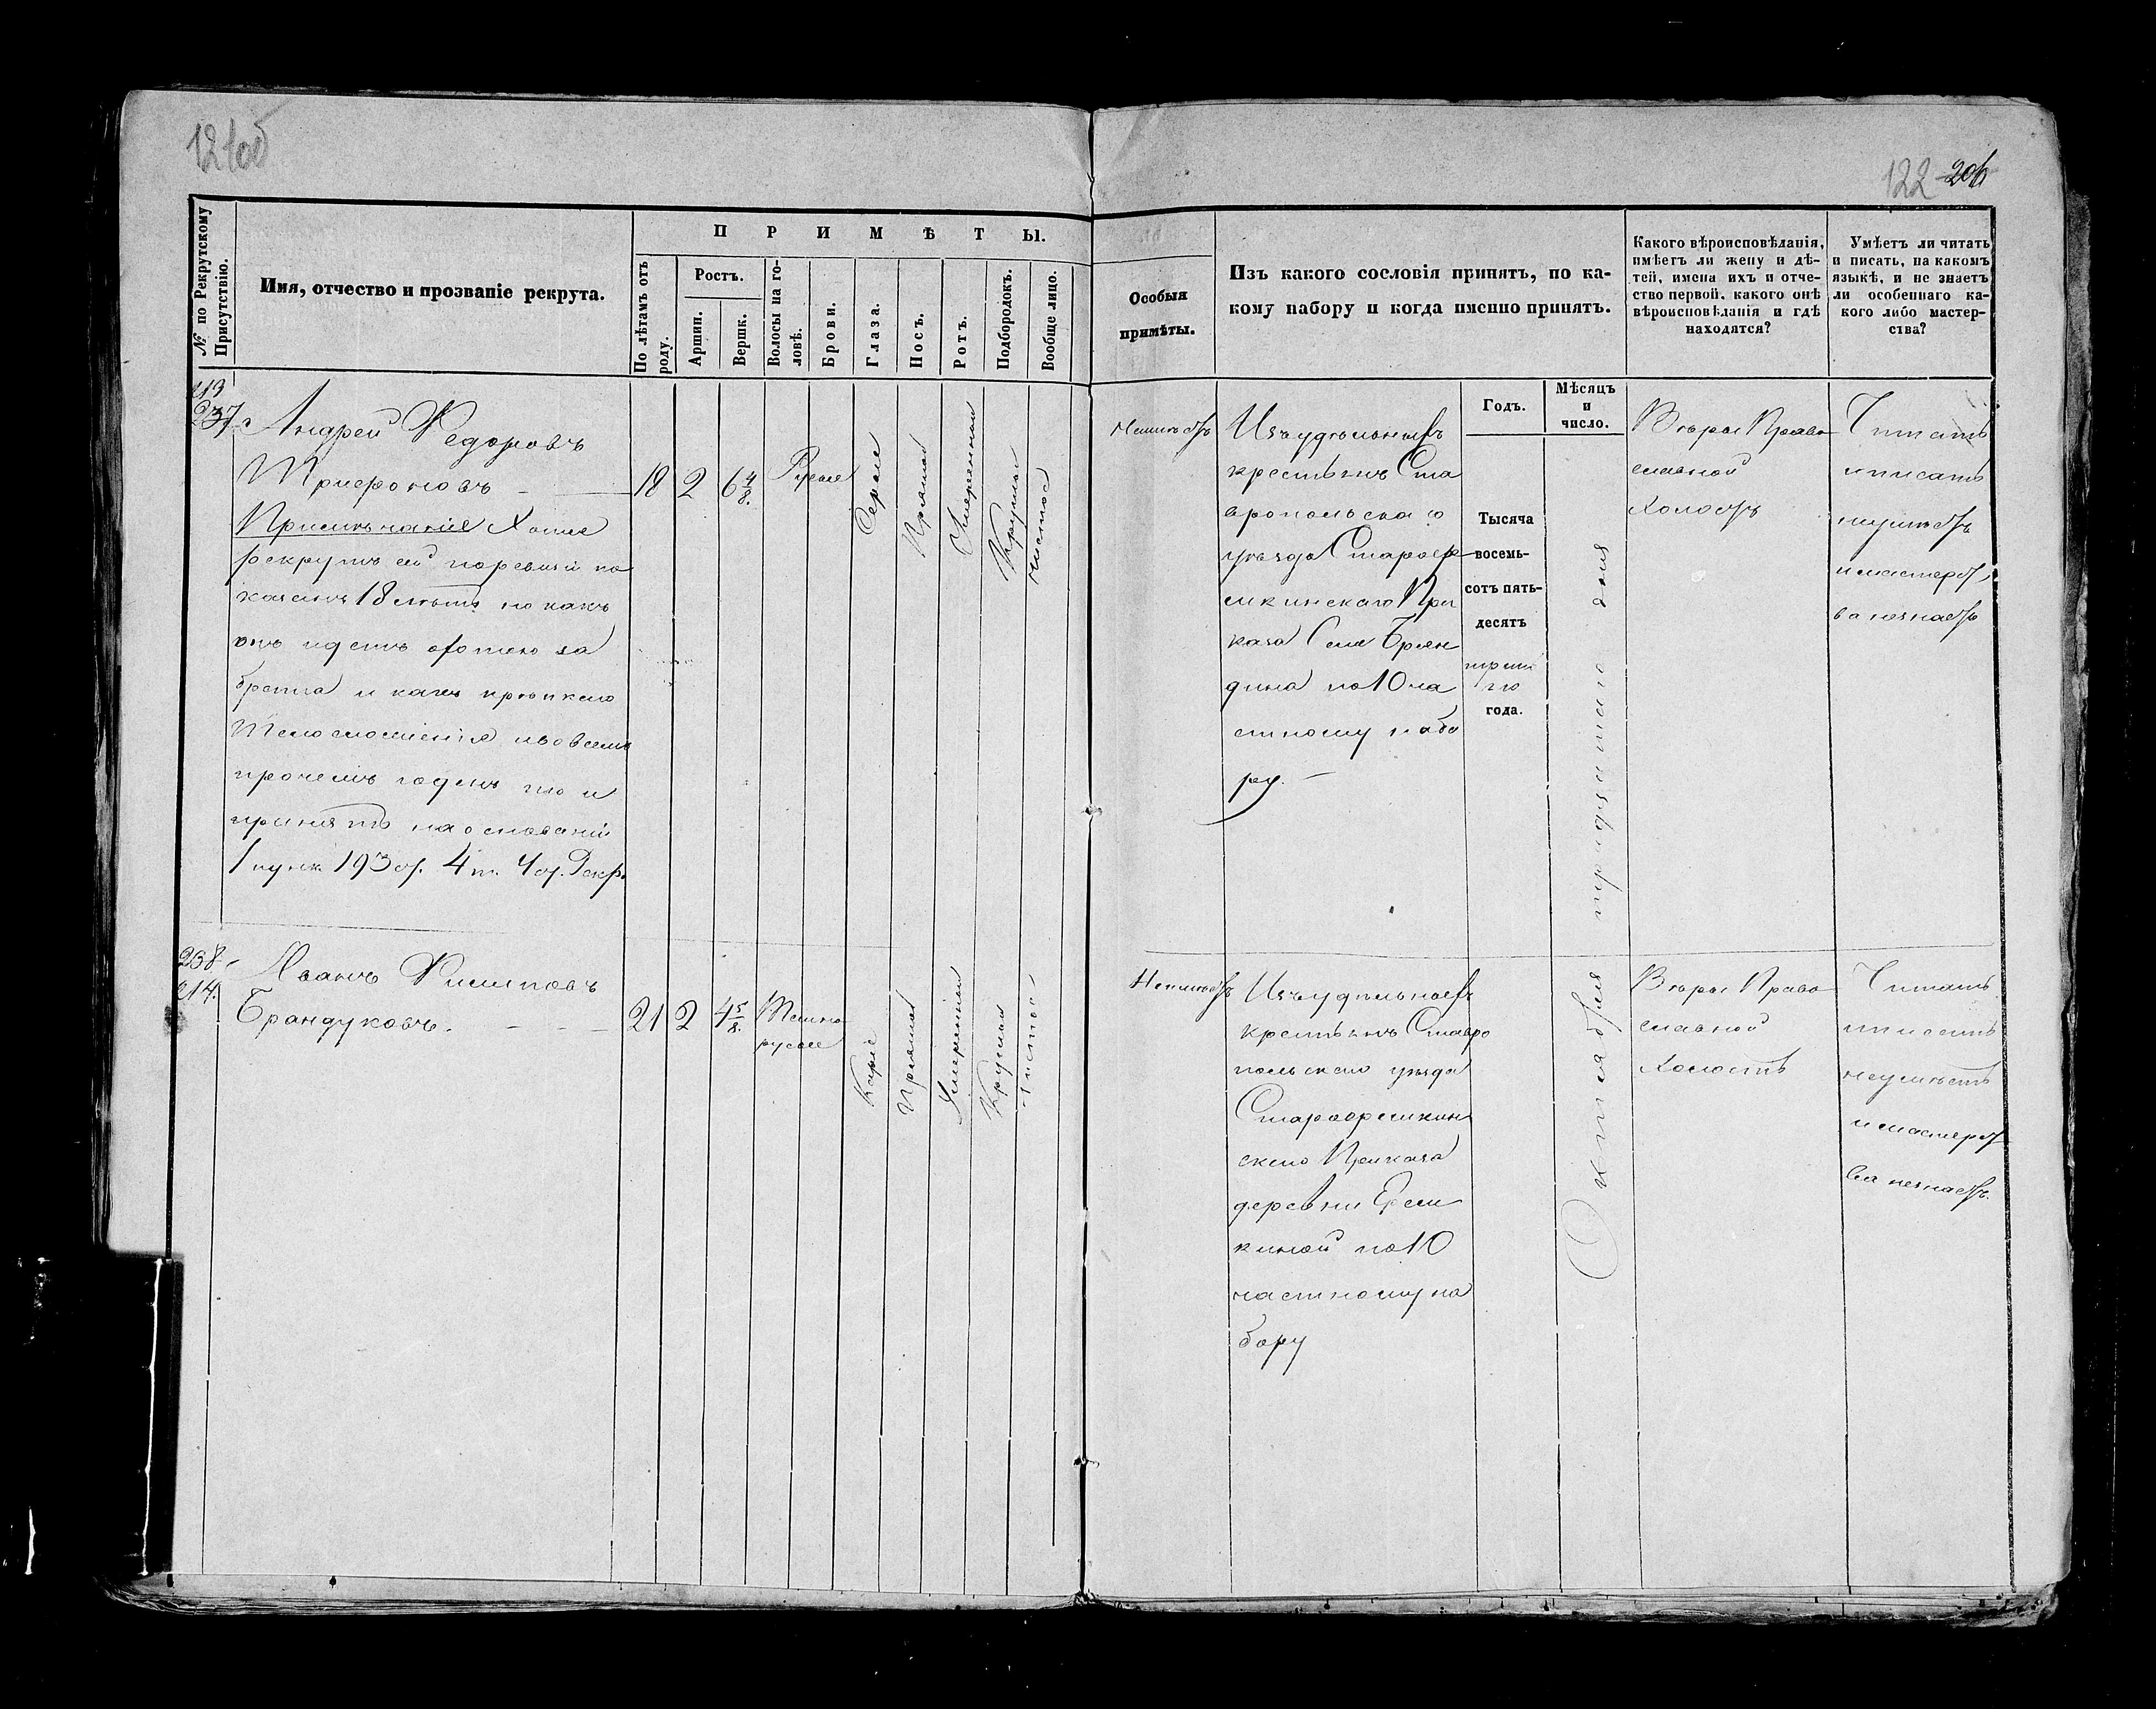 121об
122 206
№ по Рекрутскому Присутствію.
Имя, отчество и прозваніе рекрута.
ПРИМѢТЫ.
По лѣтамъ отъ роду.
Ростъ.
Аршин.
Вершк.
Волосы на го-
ловѣ.
Брови.
Глаза.
Носъ.
Ротъ.
Подбородокъ.
Вообще лицо.
Особыя
примѣты.
Изъ какого сословія принятъ, по ка-
кому набору и когда именно принятъ.
Какого вѣроисповѣданія,
имѣетъ ли жену и дѣ-
тей, имена ихъ и отче-
ство первой, какого онѣ
вѣроисповѣданія и гдѣ
находятся?
Умѣетъ ли читать
и писать, на какомъ
языкѣ, и не знаетъ
ли особеннаго ка-
кого либо мастер-
ства?
Годъ.
Мѣсяцъ
и
число.
213
237.
Андрей Федоровъ
Трифоновъ
18 2 6 4/8.
Русые
Серые
Прямой
Умеренный
Круглой
Чистое
Примѣчаніе Хотя
рекрутъ сей по ревизіи по
казанъ 18 лѣтъ но какъ
онъ идетъ охотою за
брата и какъ крѣпкаго
Телосложенія и во всемъ
прочемъ годенъ то и
принятъ на основаніи
1 пунк. 193 ст. 4 т. Уст. Рекр.
Неимѣетъ
Изъ удѣльныхъ
крестьянъ Ста
вропольскаго
уѣзда Староер
емкинскаго При
каза Села Брян
дина по 10 ча
стному набо
ру.
Тысяча
восемь-
сотъ пять-
десятъ
треть
го
года.
Октября тридцатаго дня
Вѣры Право
славной
Холостъ
Читать
и писать
неумѣетъ
и мастерст
ва незнаетъ
238.
214.
Иванъ Филиповъ
Брандуковъ.
21 2 4 5/8.
Темно
русые
Каріе
Прямой
Умеренной
Круглой
Чистое
Неимѣетъ
Изъ удѣльныхъ
крестьянъ Ставро
польскаго уѣзда
Староеремкин
скаго Приказа
деревни Ерем
киной по 10
частному на
бору
Вѣры Право
славной
Холостъ
Читать
и писать
неумѣетъ
и мастерст
ва незнаетъ.